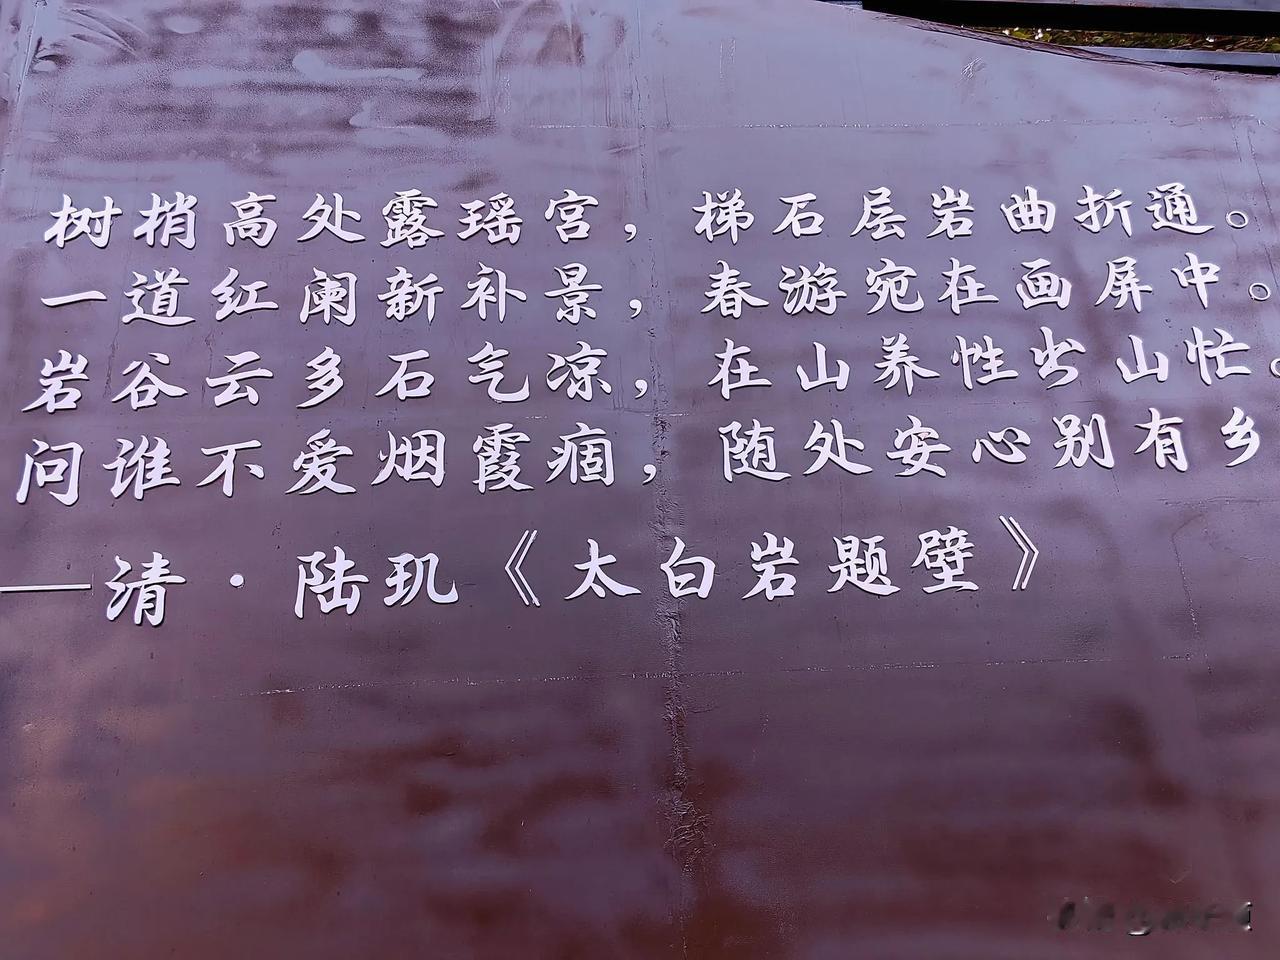 树梢高处露瑶宫，梯石层岩曲折通。
一道红阑新补景，春游宛在画屏中。
岩谷云多石气凉，在山养性出山忙。
问谁不爱烟霞痼，随处安心别有乡
——清·陆玑《太白岩题壁》